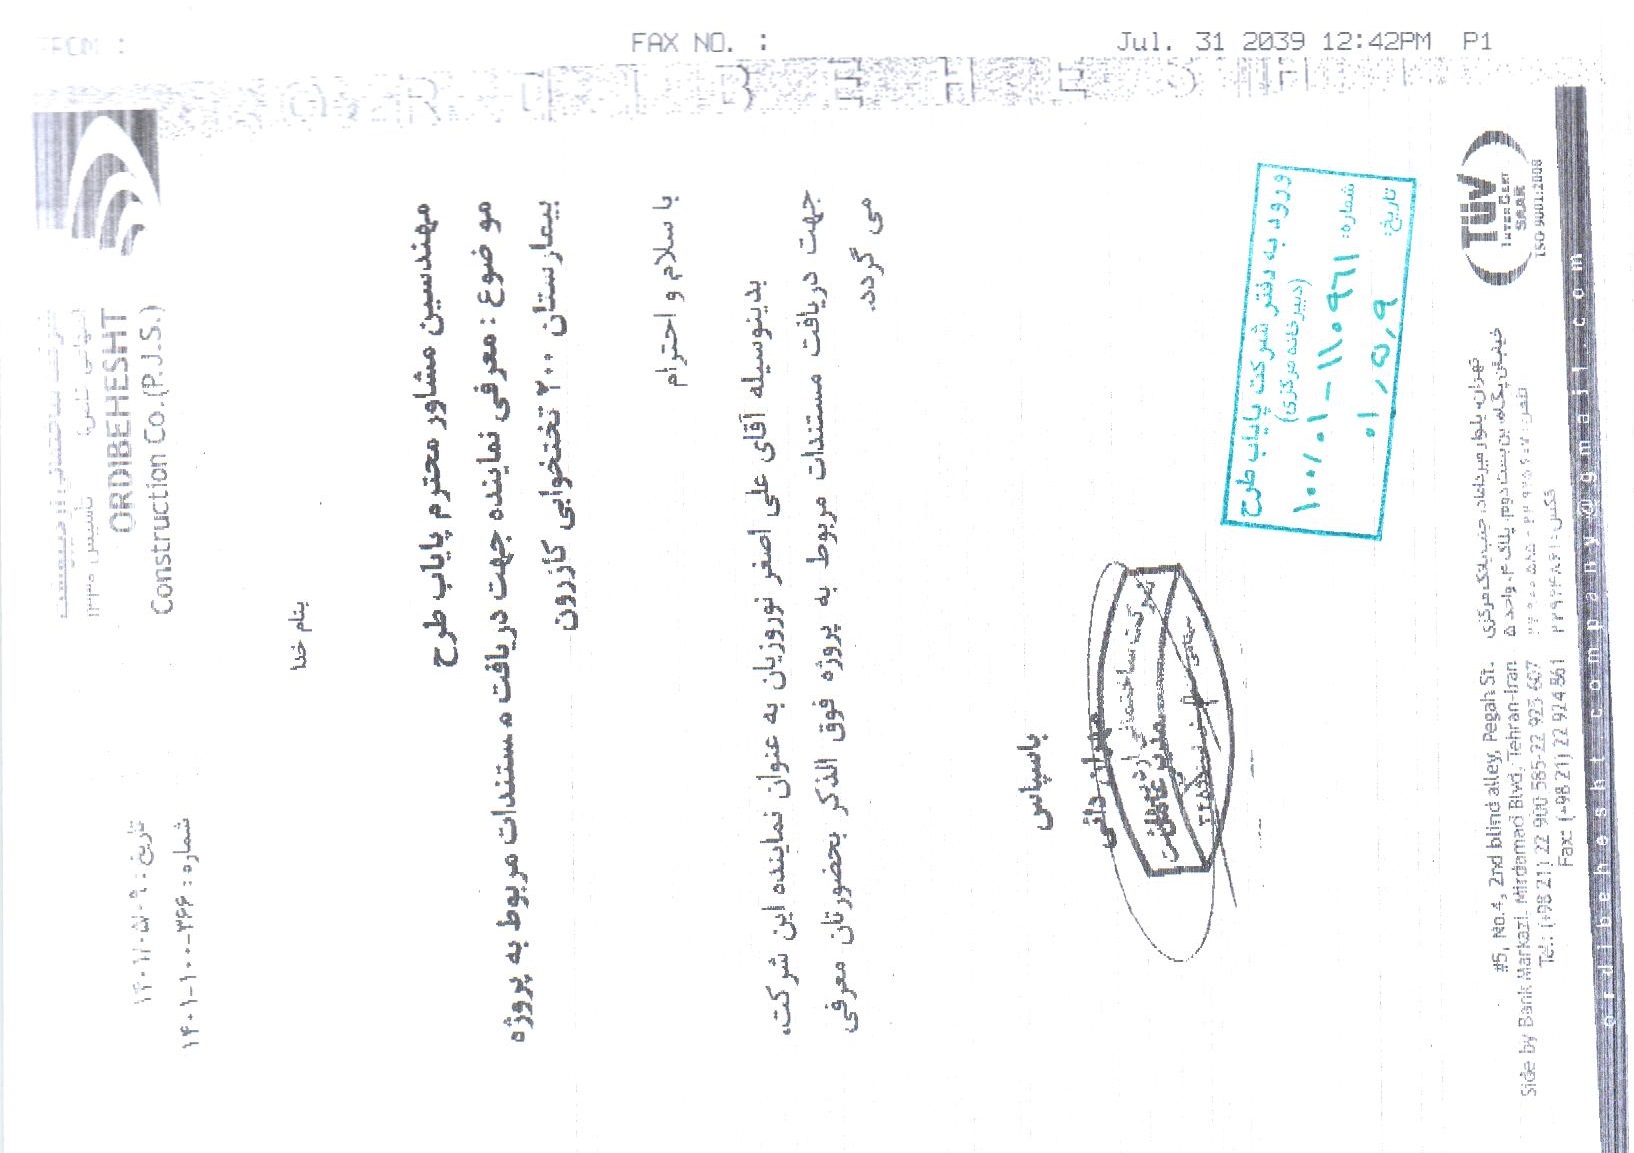 FAX NO. :
Jul. 31 2039 12:42PM P1
ORDIBEHESHT
ORDIBEHESHT
Construction Co.(P.J.S.)
تاریخ: ۱۴۰۱/۰۵/۰۹
شماره: ۱۴۰۱-۱۰۰-۳۶۶
بنام خدا
مهندسین مشاور محترم پایاب طرح
موضوع: معرفی نماینده جهت دریافت مستندات مربوط به پروژه
بیمارستان ۲۰۰ تختخوابی کازرون
با سلام و احترام
بدینوسیله آقای علی اصغر نوروزیان به عنوان نماینده این شرکت،
جهت دریافت مستندات مربوط به پروژه فوق الذکر بحضورتان معرفی
می گردد.
باسپاس
مهران ذاتی
مدیرعامل
ورود به دفتر شرکت پایاب طرح
(دبیرخانه مرکزی)
شماره: ۱۰۰/۰۱-۱۱۰۹۶۱
تاریخ: ۰۱,۵,۹
TÜV
INTERCERT
SAAR
ISO 9001:2008
تهران، بلوار میرداماد، جنب بانک مرکزی
خیابان پگاه، بن بست دوم، پلاک ۴، واحد ۵
فکس: ۲۲۹۲۴۸۶۱
#5, No.4, 2nd blind alley, Pegah St.
Side by Bank Markazi, Mirdamad Blvd, Tehran-Iran
Tel.: (+98 21) 22 900 585-22 923 607
Fax: (+98 21) 22 924 861
ordibehesht.company@gmail.com